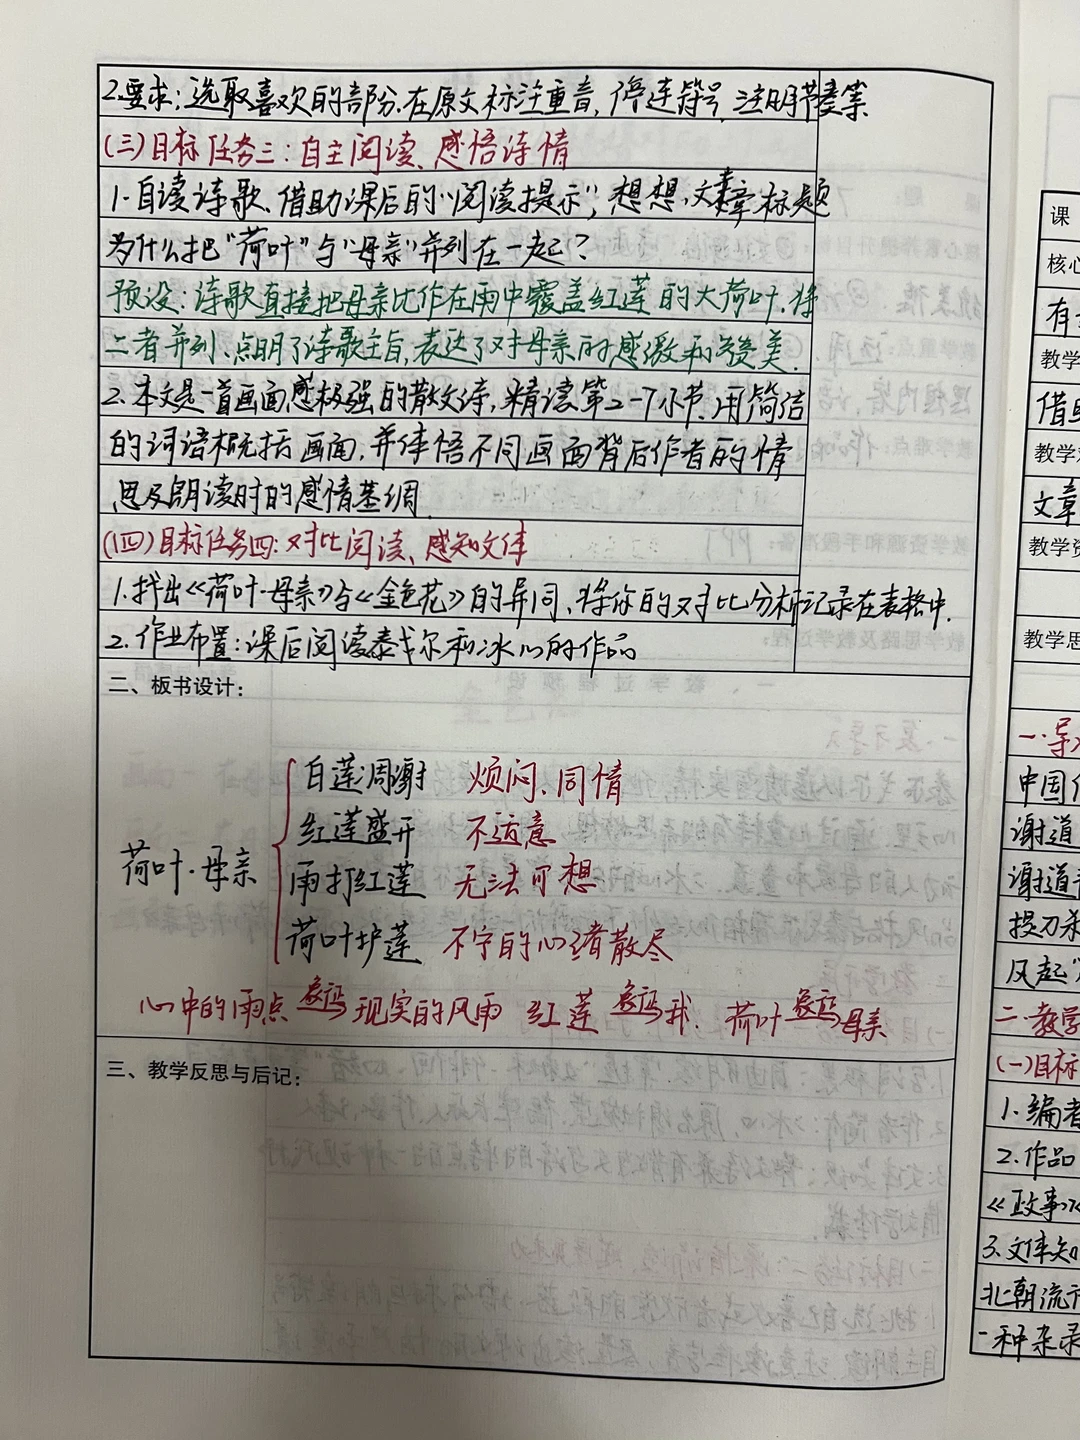 2.要求：选取喜欢的部分.在原文标注重音，停连符号，注明节奏等.
(三)目标任务三：自主阅读、感悟诗情
1.自读诗歌、借助课后的“阅读提示”，想想，文章标题
为什么把“荷叶”与“母亲”并列在一起？
预设：诗歌直接把母亲比作在雨中覆盖红莲的大荷叶.将
二者并列、点明了诗歌主旨，表达了对母亲的感激和赞美.
2.本文是一首画面感极强的散文诗，精读第2-7小节.用简洁
的词语概括画面，并体悟不同画面背后作者的情
思及朗读时的感情基调
(四)目标任务四：对比阅读、感知文体
1.找出《荷叶·母亲》与《金色花》的异同、将你的对比分析记录在表格中.
2.作业布置：课后阅读泰戈尔和冰心的作品
二、板书设计：
荷叶·母亲
白莲凋谢 烦闷、同情
红莲盛开 不适意
雨打红莲 无法可想
荷叶护莲 不宁的心绪散尽
心中的雨点 象征 现实的风雨 红莲 象征 我. 荷叶 象征 母亲
三、教学反思与后记：
课
核心
有
教学
借助
教学难
文章
教学资
教学思
一.导入
中国
谢道
谢道
提刀杀
风起
二.教学
(一)目标
1.编者
2.作品
《政事》
3.文体知
北朝流行
一种杂录